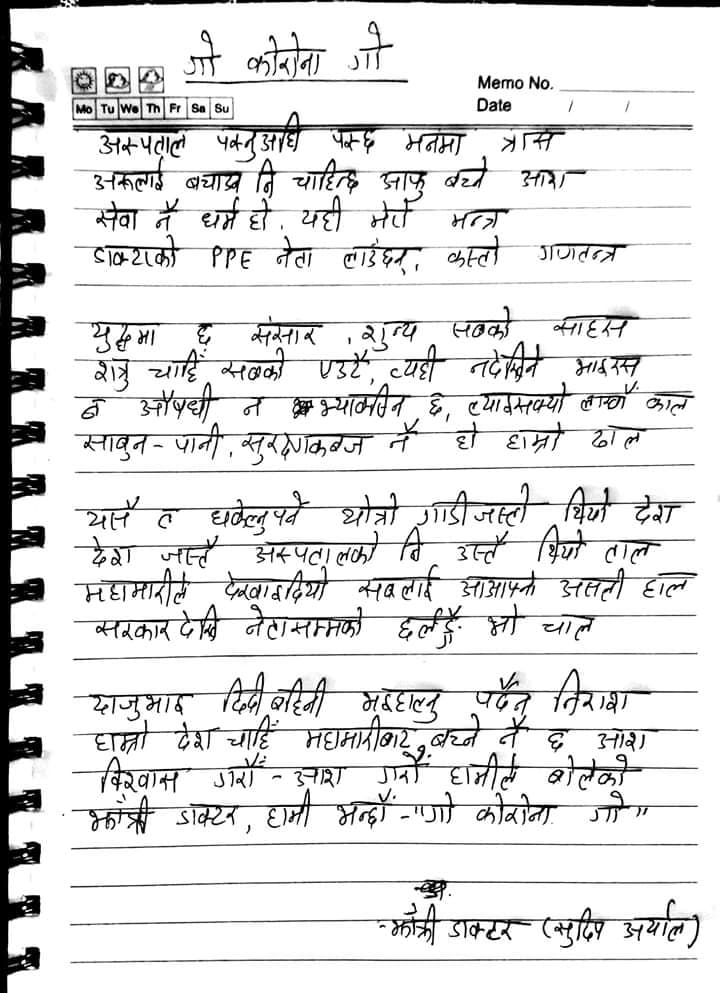 गो कोरोना गो
Memo No.
Mo Tu We Th Fr Sa Su
Date / /
अस्पताल पस्नुअघि पस्छ मनमा त्रास
अरूलाई बचाउन नि चाहिन्छ आफु बच्ने आश
सेवा नै धर्म हो, यही मेरो मन्त्र
डाक्टरको PPE नेता लाउँछन्, कस्तो गणतन्त्र
युद्धमा छ संसार, शुन्य सबको साहस
शत्रु चाहिँ सबको एउटै, त्यही नदेखिने भाइरस
न औषधी न भ्याक्सिन छ, ल्याइसक्यो लाखौँ काल
साबुन-पानी, सुरक्षाकवज नै हो हाम्रो ढाल
यसै त धकेल्नुपर्ने थोत्रो गाडीजस्तो थियो देश
देश जस्तै अस्पतालको नि उस्तै थियो ताल
महामारीले देखाइदियो सबलाई आआफ्नो असली हाल
सरकार देखि नेतासम्मको छर्लङ्गै भो चाल
दाजुभाइ दिदीबहिनी भइहाल्नु पर्दैन निराश
हाम्रो देश चाहिँ महामारीबाट बच्ने नै छ आश
विश्वास गरौँ - आश गरौँ हामीले बोलेको
झाँक्री डाक्टर, हामी भन्दौँ - "गो कोरोना गो"
- झाँक्री डाक्टर (सुदिप अर्याल)